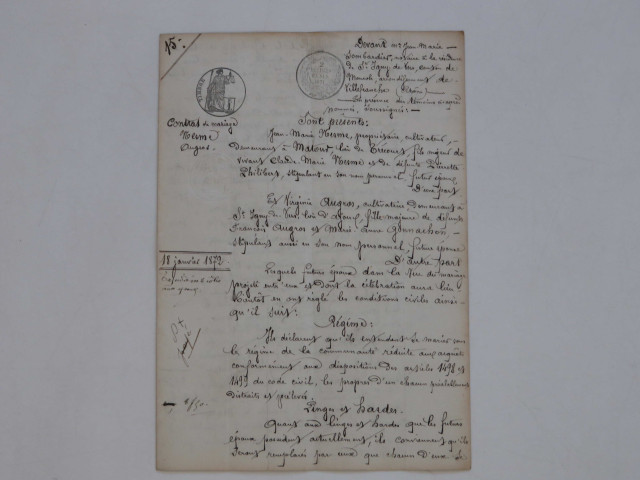 15.
Devant me Jean Marie
notaire à la résidence
de St Igny de Vers, canton de
Monsols, arrondissement de
Villefranche (Rhône)
En présence des témoins ci-après
nommés, soussignés :
Contrat de mariage
Mesme
Augros
Sont présents :
Jean Marie Mesme, propriétaire, cultivateur,
demeurant à Matour, lieu de fils majeur de
vivant Claude Marie Mesme et de défunte
Philibert, stipulant en son nom personnel, futur époux
D'une part
Et Virginie Augros, cultivatrice, demeurant à
St Igny de Vers, lieu d' fille majeure de défunts
François Augros et Marie Anne
stipulant aussi en son nom personnel, future épouse
D'autre part
18 janvier 1872
Lesquels futurs époux dans la vue du mariage
projeté entre eux et dont la célébration aura lieu
en ont réglé les conditions civiles ainsi
qu'il suit :
Régime :
Ils déclarent qu'ils entendent se marier sous
le régime de la communauté réduite aux acquêts
conformément aux dispositions des articles 1498 et
1499 du code civil, les propres d'un chacun préalablement
distraits et prélevés.
Linges et hardes.
Quant aux linges et hardes que les futurs
époux possèdent actuellement, ils conviennent qu'ils
seront remplacés par ceux que chacun d'eux se